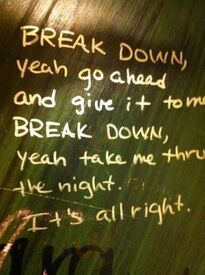 BREAK DOWN,
yeah go ahead
and give it to me
BREAK DOWN,
yeah take me thru
the night.
It's all right.